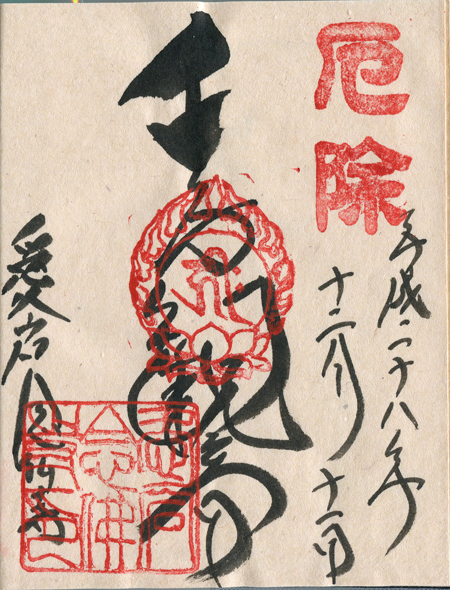 厄除
平成二十八年
十二月十一日
千手観音
愛宕念仏寺